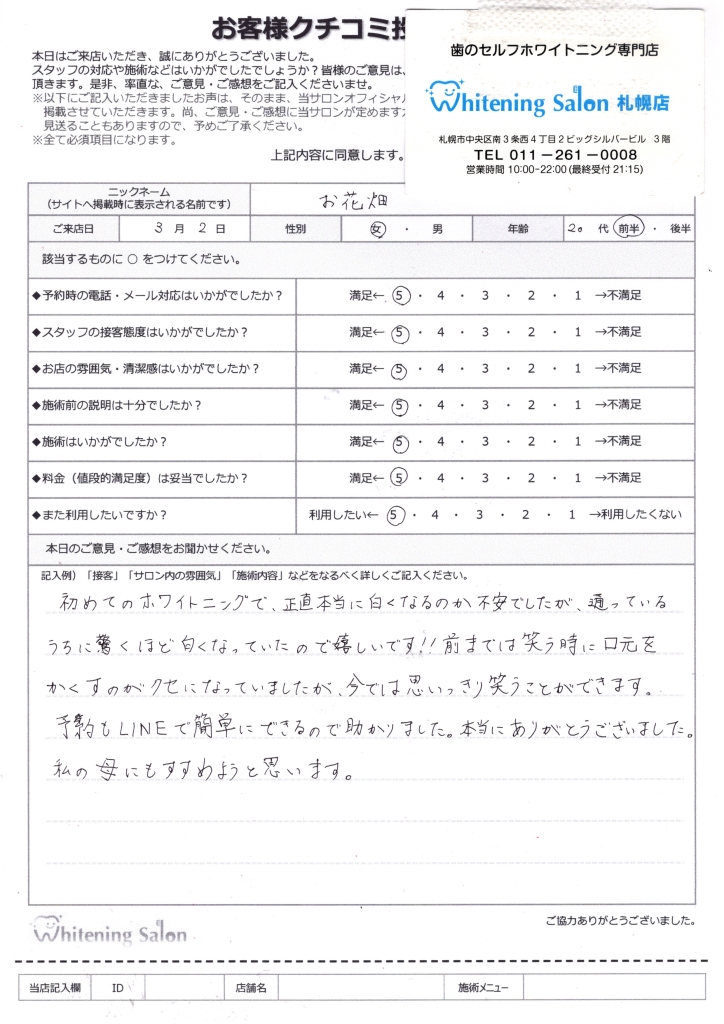 お客様クチコミ投
本日はご来店いただき、誠にありがとうございました。
スタッフの対応や施術などはいかがでしたでしょうか？皆様のご意見は、
頂きます。是非、率直な、ご意見・ご感想をご記入くださいませ。
※以下にご記入いただきましたお声は、そのまま、当サロンオフィシャル
掲載させていただきます。尚、ご意見・ご感想に当サロンが定めますガ
見送ることもありますので、予めご了承ください。
※全て必須項目になります。
上記内容に同意します。
歯のセルフホワイトニング専門店
Whitening Salon 札幌店
札幌市中央区南3条西4丁目2ビッグシルバービル 3階
TEL 011－261－0008
営業時間 10:00-22:00(最終受付 21:15)
ニックネーム
（サイトへ掲載時に表示される名前です）
お花畑
ご来店日 3 月 2 日 性別 女 ・ 男 年齢 20 代 前半 ・ 後半
該当するものに ○ をつけてください。
◆予約時の電話・メール対応はいかがでしたか？ 満足← 5 ・ 4 ・ 3 ・ 2 ・ 1 →不満足
◆スタッフの接客態度はいかがでしたか？ 満足← 5 ・ 4 ・ 3 ・ 2 ・ 1 →不満足
◆お店の雰囲気・清潔感はいかがでしたか？ 満足← 5 ・ 4 ・ 3 ・ 2 ・ 1 →不満足
◆施術前の説明は十分でしたか？ 満足← 5 ・ 4 ・ 3 ・ 2 ・ 1 →不満足
◆施術はいかがでしたか？ 満足← 5 ・ 4 ・ 3 ・ 2 ・ 1 →不満足
◆料金（値段的満足度）は妥当でしたか？ 満足← 5 ・ 4 ・ 3 ・ 2 ・ 1 →不満足
◆また利用したいですか？ 利用したい← 5 ・ 4 ・ 3 ・ 2 ・ 1 →利用したくない
本日のご意見・ご感想をお聞かせください。
記入例）「接客」「サロン内の雰囲気」「施術内容」などをなるべく詳しくご記入ください。
初めてのホワイトニングで、正直本当に白くなるのか不安でしたが、通っている
うちに驚くほど白くなっていたので嬉しいです!!前までは笑う時に口元を
かくすのがクセになっていましたが、今では思いっきり笑うことができます。
予約もLINEで簡単にできるので助かりました。本当にありがとうございました。
私の母にもすすめようと思います。
ご協力ありがとうございました。
Whitening Salon
当店記入欄 ID 店舗名 施術メニュー